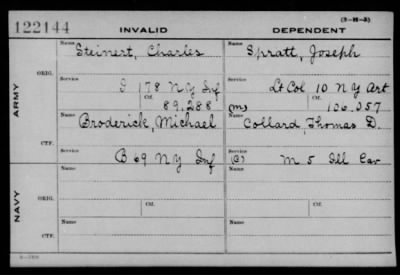 (3-H-5)
122144 INVALID DEPENDENT
Name Steinert, Charles Name Spratt, Joseph
ARMY
ORIG.
Service G 178 N Y Inf Service Lt Col 10 N Y Art
Ctf. 89,288 (m) Ctf. 106.057
Name Broderick, Michael Name Collard, Thomas D.
CTF.
Service B 69 N Y Inf Service (B) M 5 Ill Cav
NAVY
ORIG.
Name Name
Service Service
Ctf. Ctf.
CTF.
Name Name
Service Service